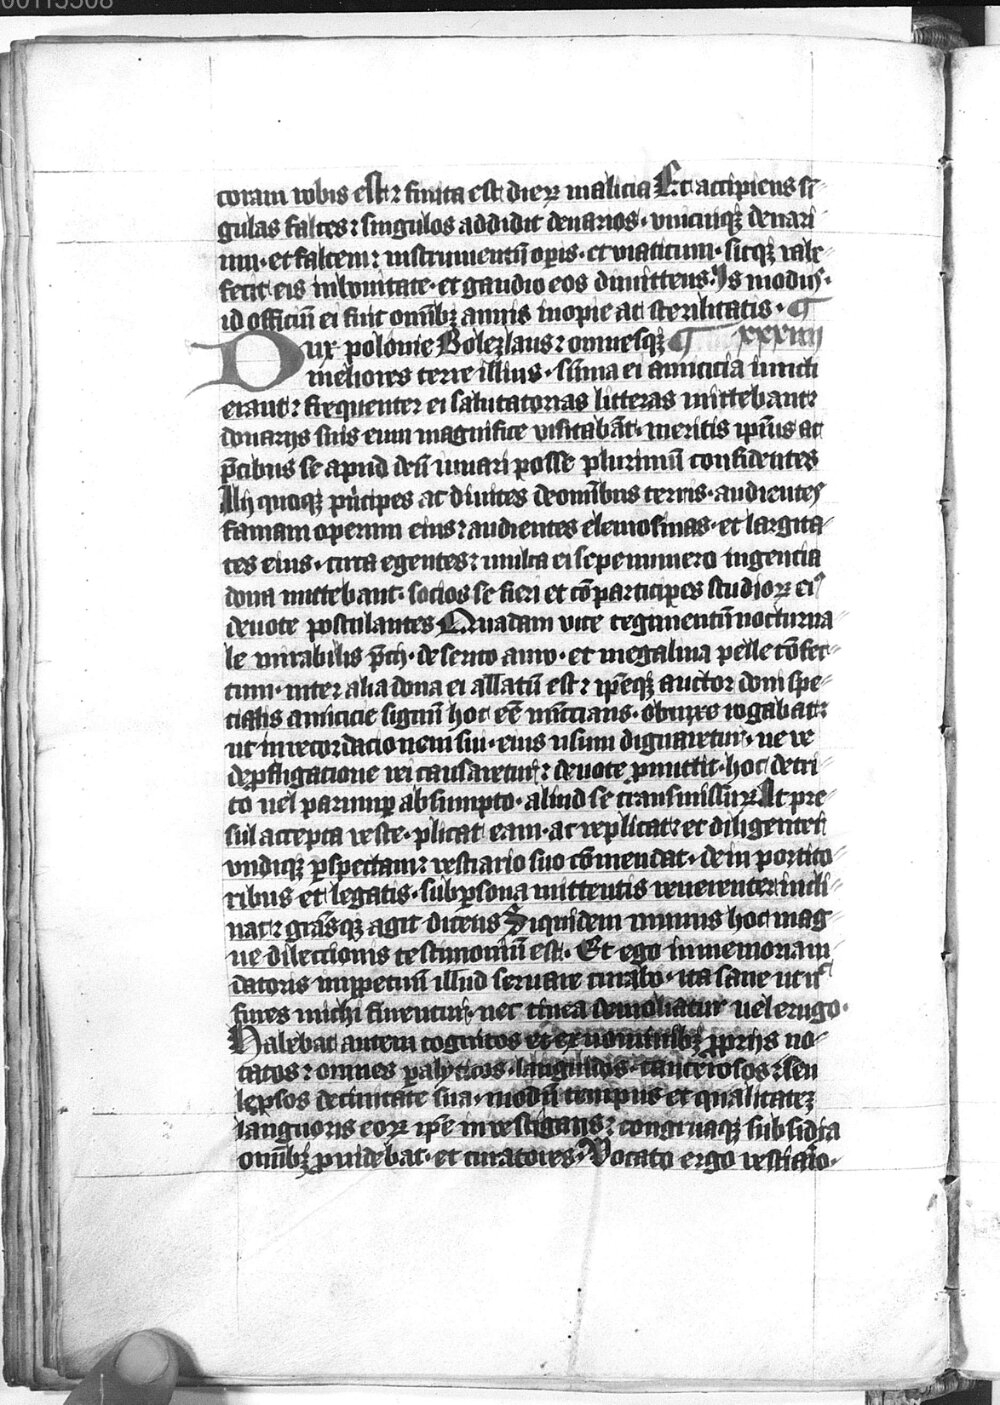 00113308
coram vobis est ⁊ finita est dieꝝ malicia Et accipiens sī
gulas falces ⁊ singulos addidit denarios · vnicuiqꝫ denari
um · et falcem ⁊ instrumentū oꝑis · et viaticum · sicqꝫ vale
fecit eis inbonitate · et gaudio eos dimittens · Is modus ·
id officiū ei fuit omībꝫ annis inopie ac sterilitatis · ¶
Dux polonie Bolezlaus ⁊ omnesqꝫ ¶ xxxiiij
meliores terre illius · sūma ei amicicia iuncti
erant ⁊ frequenter ei salutatorias litteras mittebant ⁊
donarijs suis eum magnifice visitabāt · meritis ipīus ac
p̄cibus se apud deū iuuari posse plurimū confidentes
Alij quoqꝫ pricipes ac diuites deomībus terris · audientes
famam operum eius ⁊ audientes elemosinas · et largita
tes eius · circa egentes ⁊ multa ei sepenumero ingencia
dona mittebant · socios se fieri et cōparticipes studioꝝ eiꝰ
deuote postulantes Quadam vice tegimentū nocturna
le mirabilis p̄cij · de serico auro · et megalina pelle cōfec
tum · inter alia dona ei allatū est ⁊ ip̄eqꝫ auctor doni spe
cialis amicicie signū hoc eē nūccians · obnixe rogabat ⁊
ut in recordacionem sui · eius usum dignaretur · ne ve
deꝓfligacione rei causaretur ⁊ deuote ꝓmittit · hoc detri
to uel parumꝑ absumpto · aliud se transmissuꝝ At pre
sul accepta veste · plicat eam · ac replicat ⁊ et diligenter
vndiqꝫ ꝑspectam ⁊ vestiario suo cōmendat · dein portito
ribus et legatis · subꝑsona mittentis reuerenter incli
nat ⁊ grāsqꝫ agit dicens Siquidem munus hoc mag
ne dileccionis testimoniū est · Et ego inmemoriam
datoris inꝑpetuū illud seruare curabo · ita sane ut nͨ
fures michi furentur · nec tinea demoliatur uel erugo ·
Halebat autem cognitos et ex nominibꝫ ꝓprijs no
tatos ⁊ omnes ꝑalyticos · languidos · cancerosos ⁊ seu
leprosos decinitate sua · modū tempus et qualitatez
languoris eoꝝ ip̄e investigans ⁊ congruaqꝫ subsidia
omībꝫ ꝓuidebat · et curatores · Vocato ergo vestiario ·